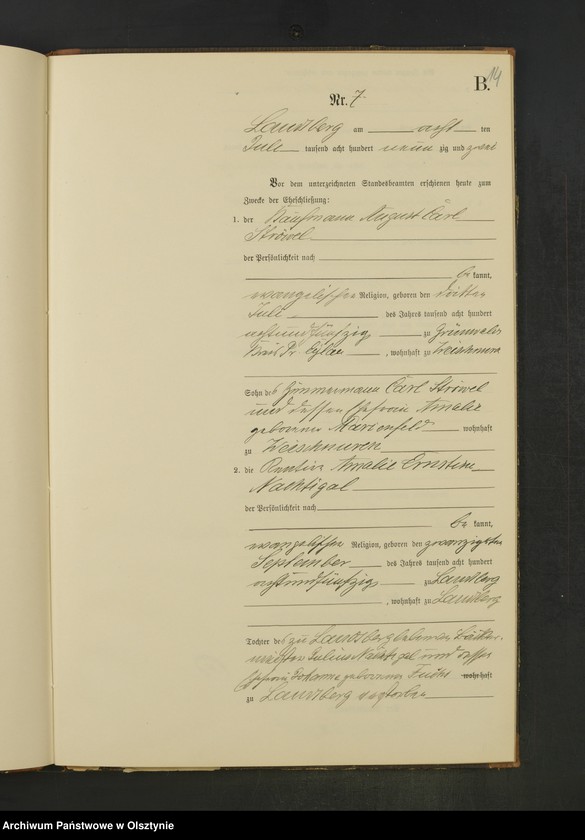 14
B.
Nr. 7.
Landsberg am acht ten
Juli tausend acht hundert neun zig und zwei
Vor dem unterzeichneten Standesbeamten erschienen heute zum
Zwecke der Eheschließung:
1. der Kaufmann August Carl
Ströwel
der Persönlichkeit nach
be kannt,
evangelischer Religion, geboren den dritten
Juli des Jahres tausend acht hundert
achtundfünfzig zu Grünwalde
Kreis Pr. Eylau, wohnhaft zu
Sohn des Zimmermann Carl Ströwel
und dessen Ehefrau Amalie
geborenen Marienfeld wohnhaft
zu
2. die Amalie Ernstine
Nachtigal
der Persönlichkeit nach
be kannt,
evangelischer Religion, geboren den zwanzigsten
September des Jahres tausend acht hundert
achtundfünfzig zu Landsberg
, wohnhaft zu Landsberg
Tochter des zu Landsberg Bäcker-
meister Julius Nachtigal und dessen
Ehefrau Johanna geborenen Fuchs wohnhaft
zu Landsberg verstorben
Archiwum Państwowe w Olsztynie